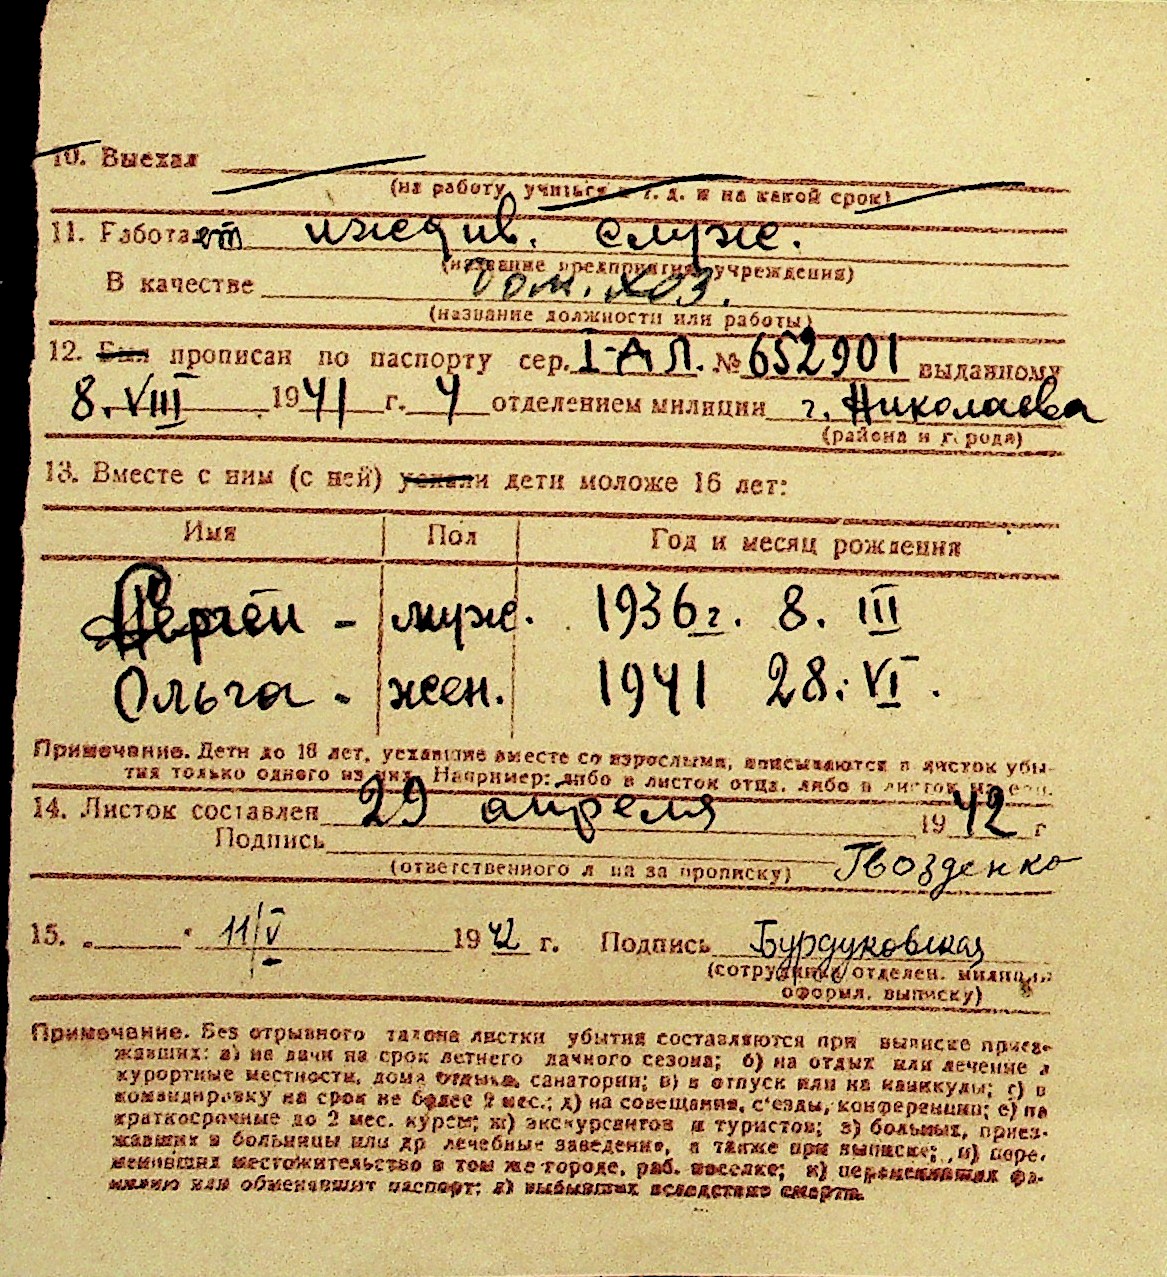 10. Выехал
(на работу, учиться и т. д. и на какой срок)
11. Работает иждив. служ.
(название предприятия, учреждения)
В качестве дом. хоз.
(название должности или работы)
12. Был прописан по паспорту сер. I-АЛ. № 652901 выданному
8. VIII 1941 г. 4 отделением милиции г. Николаева
(района и города)
13. Вместе с ним (с ней) уехали дети моложе 16 лет:
Имя Пол Год и месяц рождения
Сергей - муж. 1936 г. 8. III
Ольга - жен. 1941 28. VI.
Примечание. Дети до 16 лет, уехавшие вместе со взрослыми, вписываются в листок убы-
тия только одного из них. Например: либо в листок отца, либо в листок матери.
14. Листок составлен 29 апреля 1942 г
Подпись Гвозденко
(ответственного л на за прописку)
15. „ " 11/V 1942 г. Подпись Бурдуковская
(сотрудника отделен. милиции
оформл. выписку)
Примечание. Без отрывного талона листки убытия составляются при выписке приез-
жавших: а) на дачи на срок летнего дачного сезона; б) на отдых или лечение в
курортные местности, дома отдыха, санатории; в) в отпуск или на каникулы; г) в
командировку на срок не более 2 мес.; д) на совещания, с'езды, конференции; е) на
краткосрочные до 2 мес. курсы; ж) экскурсантов и туристов; з) больных, приез-
жавших в больницы или др лечебные заведение, а также при выписке; и) пере-
менивших местожительство в том же городе, раб. поселке; к) переменивших фа-
милию или обменявшит паспорт; л) выбывших вследствие смерти.